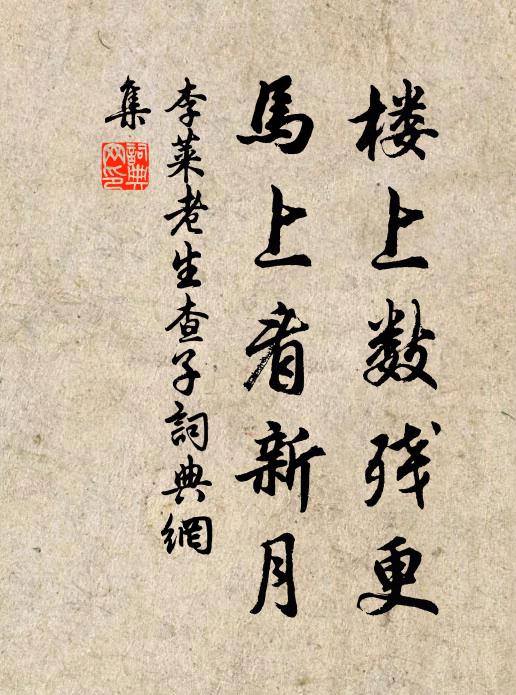 楼上数残更
馬上看新月
李萊老生查子詞典網
集
詞典網印